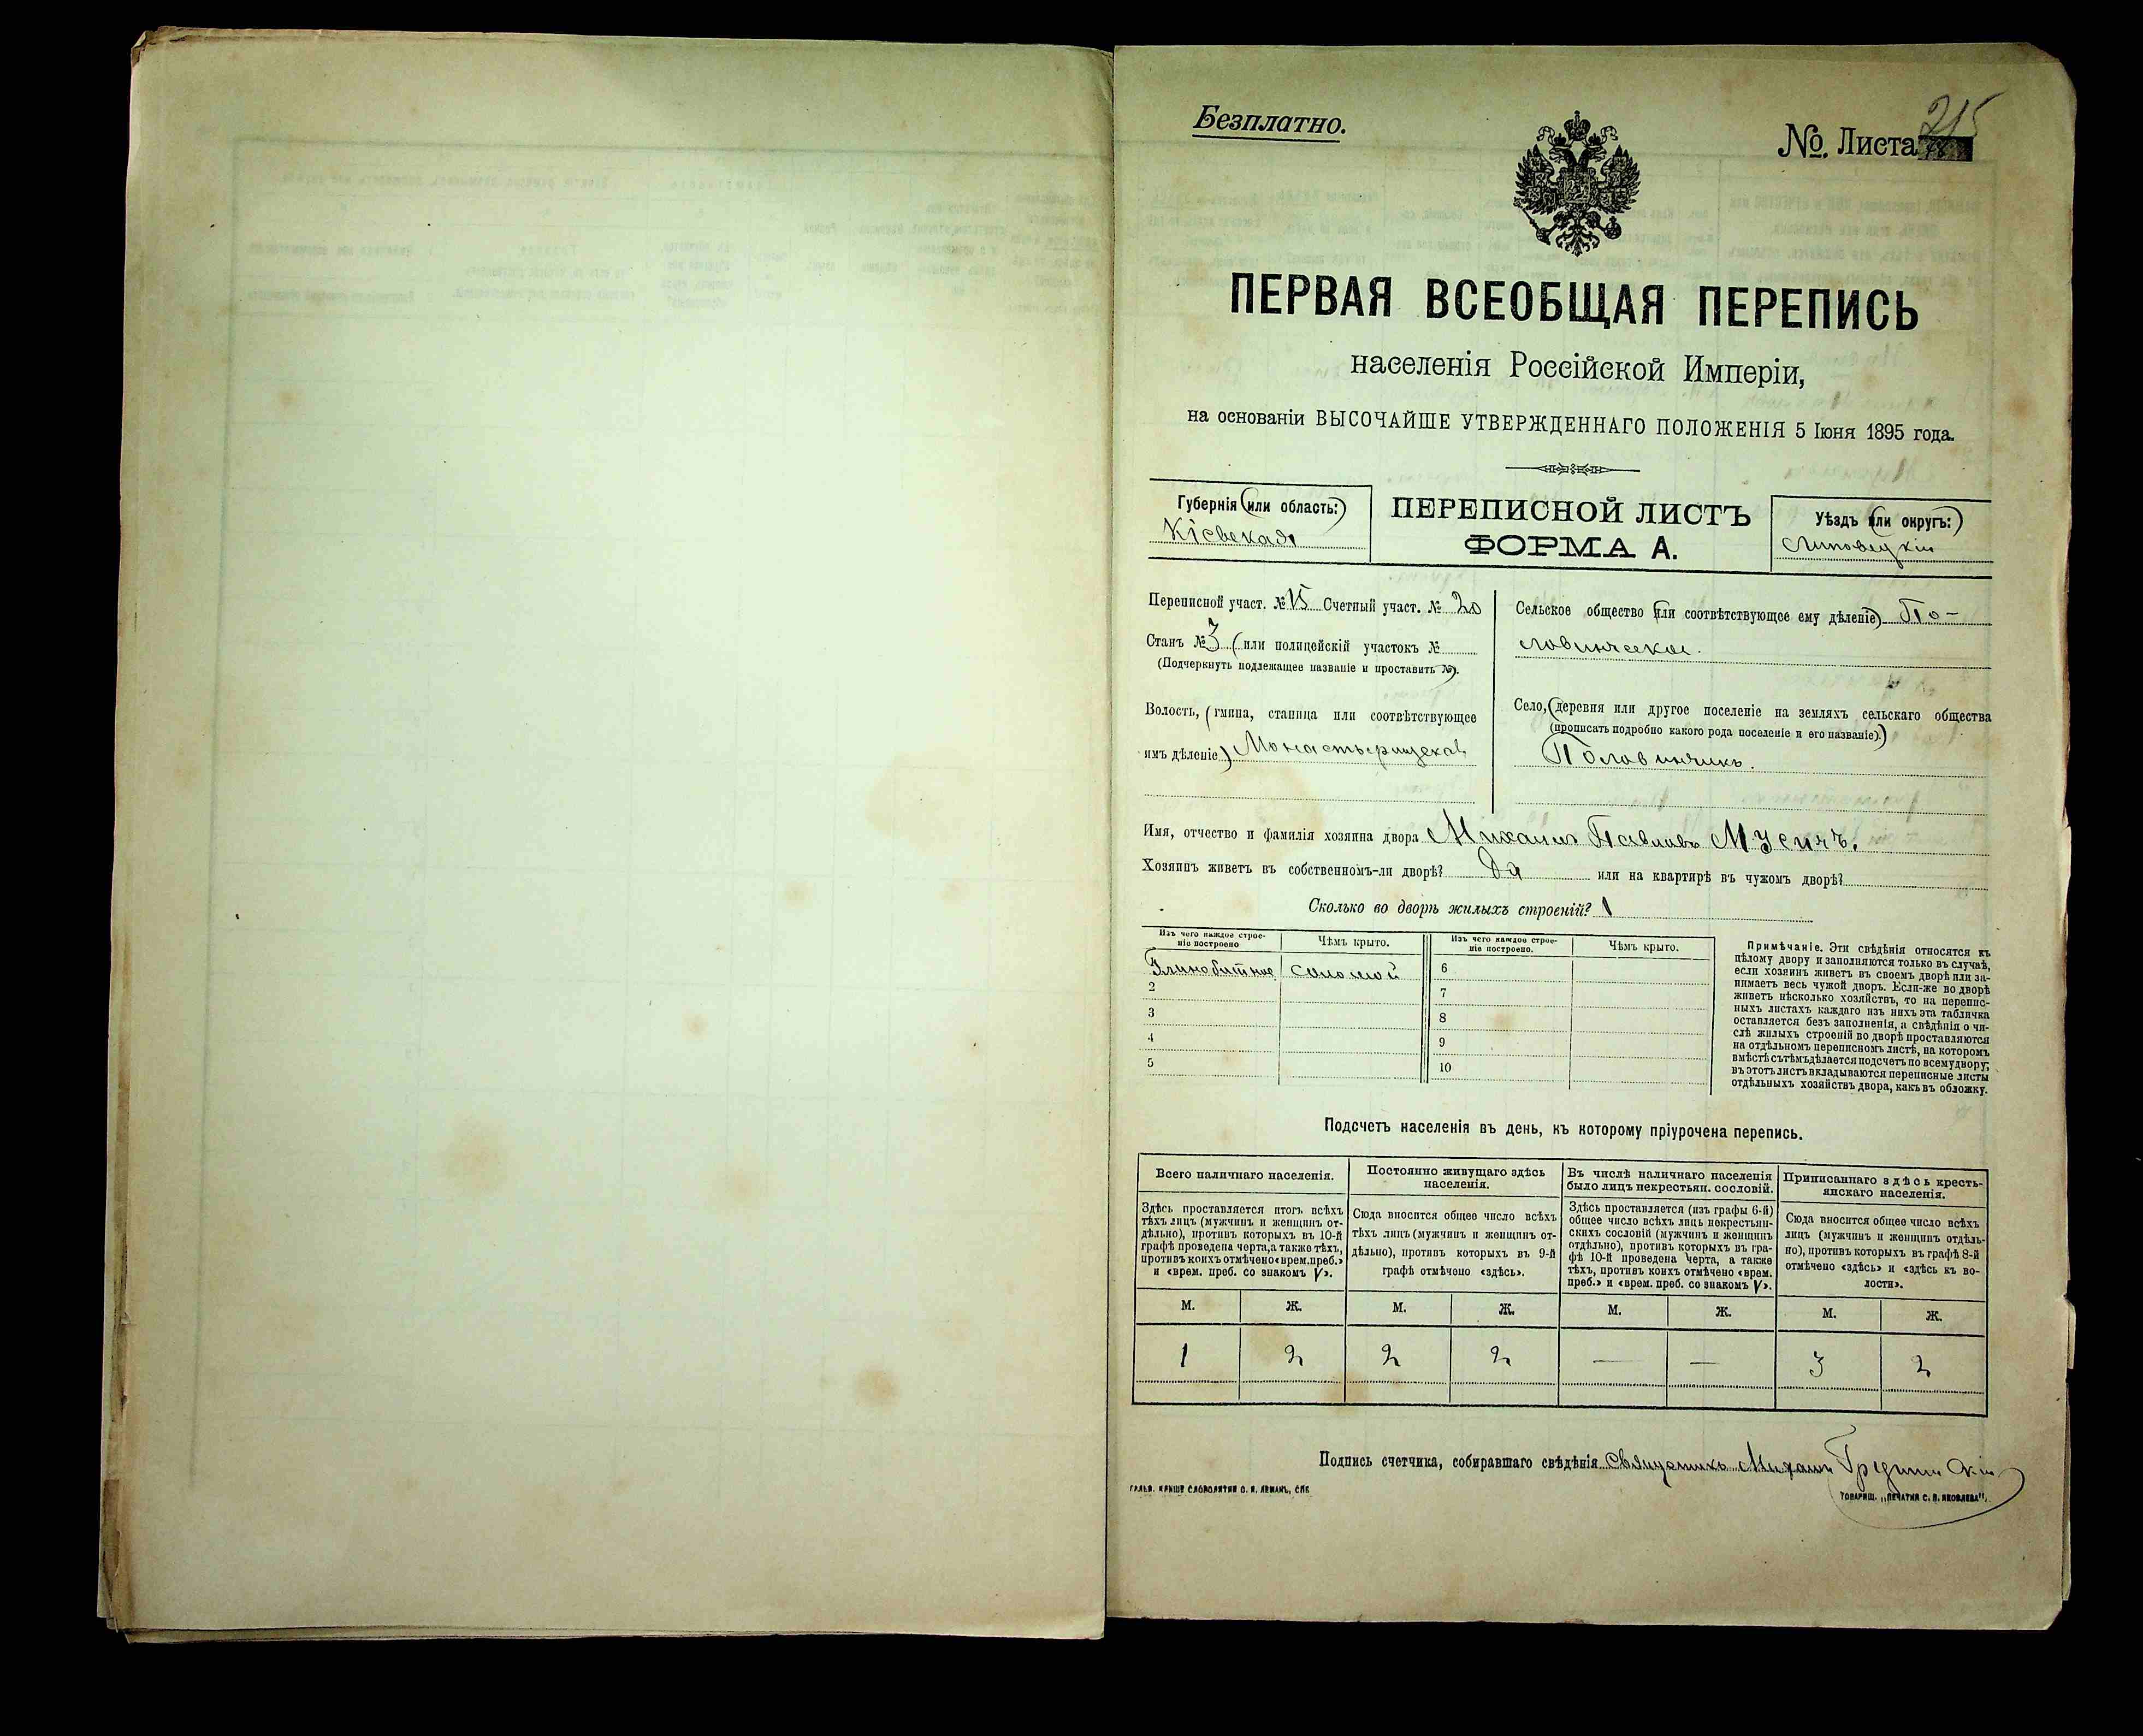 Безплатно.
№ Листа 215
ПЕРВАЯ ВСЕОБЩАЯ ПЕРЕПИСЬ
населенія Россійской Имперіи,
на основаніи ВЫСОЧАЙШЕ УТВЕРЖДЕННАГО ПОЛОЖЕНІЯ 5 Іюня 1895 года.
Губернія (или область:)
Кіевская
ПЕРЕПИСНОЙ ЛИСТЪ
ФОРМА А.
Уѣздъ (или округъ:)
Липовецкій
Переписной участ. № 15 Счетный участ. № 20
Станъ № 3 (или полицейскій участокъ №
(Подчеркнуть подлежащее названіе и проставить №).
Волость, (гмина, станица или соотвѣтствующее
имъ дѣленіе) Монастырищская
Сельское общество (или соотвѣтствующее ему дѣленіе) По-
ловинчское.
Село, (деревня или другое поселеніе на земляхъ сельскаго общества
(прописать подробно какого рода поселеніе и его названіе).)
Половинчикъ.
Имя, отчество и фамилія хозяина двора Михаилъ Павловъ
Хозяинъ живетъ въ собственномъ-ли дворѣ? Да или на квартирѣ въ чужомъ дворѣ?
Сколько во дворѣ жилыхъ строеній? 1
Изъ чего каждое строе-
ніе построено
Чѣмъ крыто.
Изъ чего каждое строе-
ніе построено.
Чѣмъ крыто.
Глинобитное соломой
2
3
4
5
6
7
8
9
10
Примѣчаніе. Эти свѣдѣнія относятся къ
цѣлому двору и заполняются только въ случаѣ,
если хозяинъ живетъ въ своемъ дворѣ или за-
нимаетъ весь чужой дворъ. Если-же во дворѣ
живетъ нѣсколько хозяйствъ, то на перепис-
ныхъ листахъ каждаго изъ нихъ эта табличка
оставляется безъ заполненія, а свѣдѣнія о чи-
слѣ жилыхъ строеній во дворѣ проставляются
на отдѣльномъ переписномъ листѣ, на которомъ
вмѣстѣ съ тѣмъ дѣлается подсчетъ по всему двору;
въ этотъ листъ вкладываются переписные листы
отдѣльныхъ хозяйствъ двора, какъ въ обложку.
Подсчетъ населенія въ день, къ которому пріурочена перепись.
Всего наличнаго населенія.
Постоянно живущаго здѣсь
населенія.
Въ числѣ наличнаго населенія
было лицъ некрестьян. сословій.
Приписаннаго здѣсь кресть-
янскаго населенія.
Здѣсь проставляется итогъ всѣхъ
тѣхъ лицъ (мужчинъ и женщинъ от-
дѣльно), противъ которыхъ въ 10-й
графѣ проведена черта, а также тѣхъ,
противъ коихъ отмѣчено «врем. преб.»
и «врем. преб. со знакомъ V».
Сюда вносится общее число всѣхъ
тѣхъ лицъ (мужчинъ и женщинъ от-
дѣльно), противъ которыхъ въ 9-й
графѣ отмѣчено «здѣсь».
Здѣсь проставляется (изъ графы 6-й)
общее число всѣхъ лицъ некрестьян-
скихъ сословій (мужчинъ и женщинъ
отдѣльно), противъ которыхъ въ гра-
фѣ 10-й проведена черта, а также
тѣхъ, противъ коихъ отмѣчено «врем.
преб.» и «врем. преб. со знакомъ V».
Сюда вносится общее число всѣхъ
лицъ (мужчинъ и женщинъ отдѣль-
но), противъ которыхъ въ графѣ 8-й
отмѣчено «здѣсь» и «здѣсь къ во-
лости».
М. Ж. М. Ж. М. Ж. М. Ж.
1 2 2 2 — — 3 2
Подпись счетчика, собиравшаго свѣдѣнія Священникъ Михаилъ
ГАЛЬВ. КЛИШЕ СЛОВОЛИТНИ О. И. ЛЕМАНЪ, СПБ
ТОВАРИЩ. „ПЕЧАТНЯ С. П. ЯКОВЛЕВА".